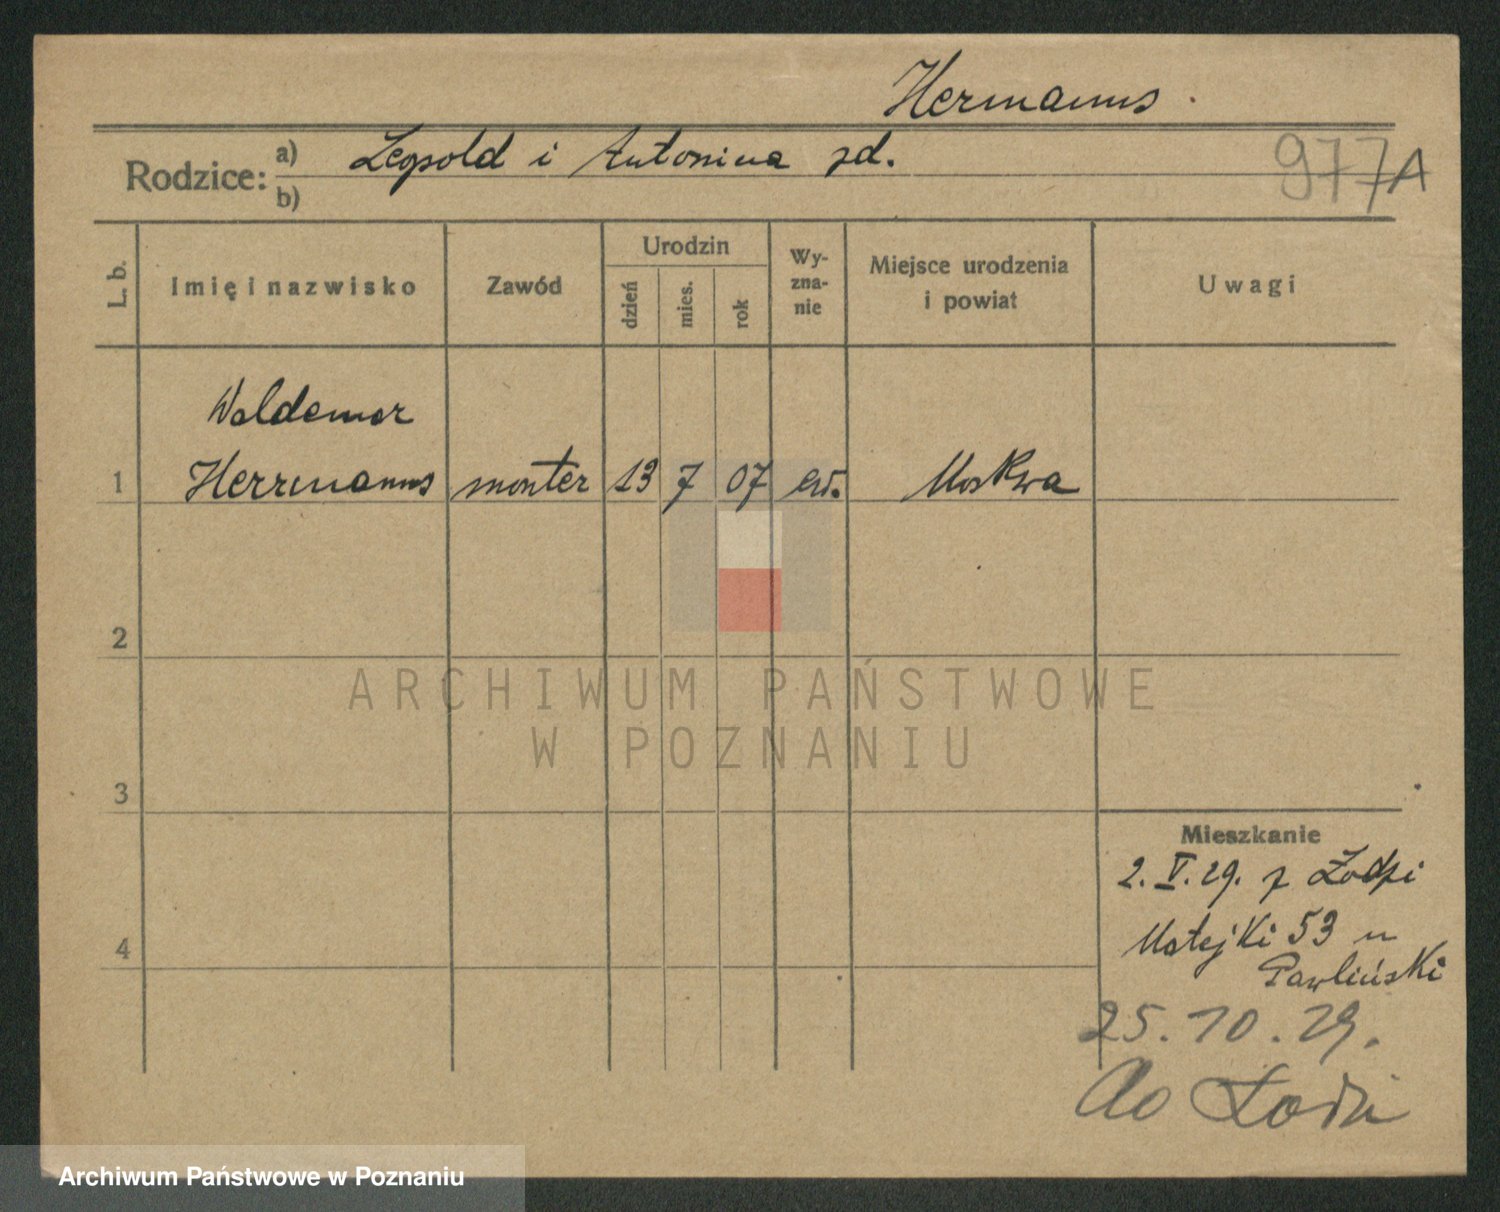 Hermanns
Rodzice:
a) Leopold i Antonina zd.
b)
977A
L. b.
Imię i nazwisko
Zawód
Urodzin
dzień
mies.
rok
Wy-
zna-
nie
Miejsce urodzenia
i powiat
Uwagi
Waldemar
1 Herrmanns monter 13 7 07 ew. Moskwa
2
3
4
Mieszkanie
2. V. 29. z Łodzi
Matejki 53 u
Pawliński
25. 10. 29.
do Łodzi
ARCHIWUM PAŃSTWOWE
W POZNANIU
Archiwum Państwowe w Poznaniu